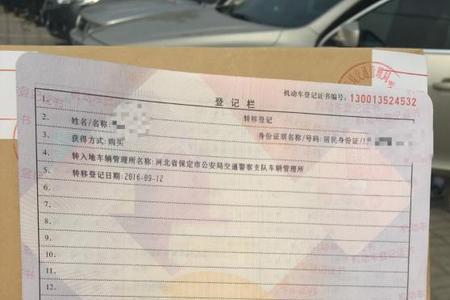 机动车登记证书编号: 130013524532
登记栏
1.
2. 转移登记
姓名/名称: 身份证明名称/号码: 居民身份证/1
3. 获得方式: 购买
4. 转入地车辆管理所名称: 河北省保定市公安局交通警察支队车辆管理所
5. 转移登记日期: 2016-09-12
6.
7.
8.
9.
10.
11.
12.